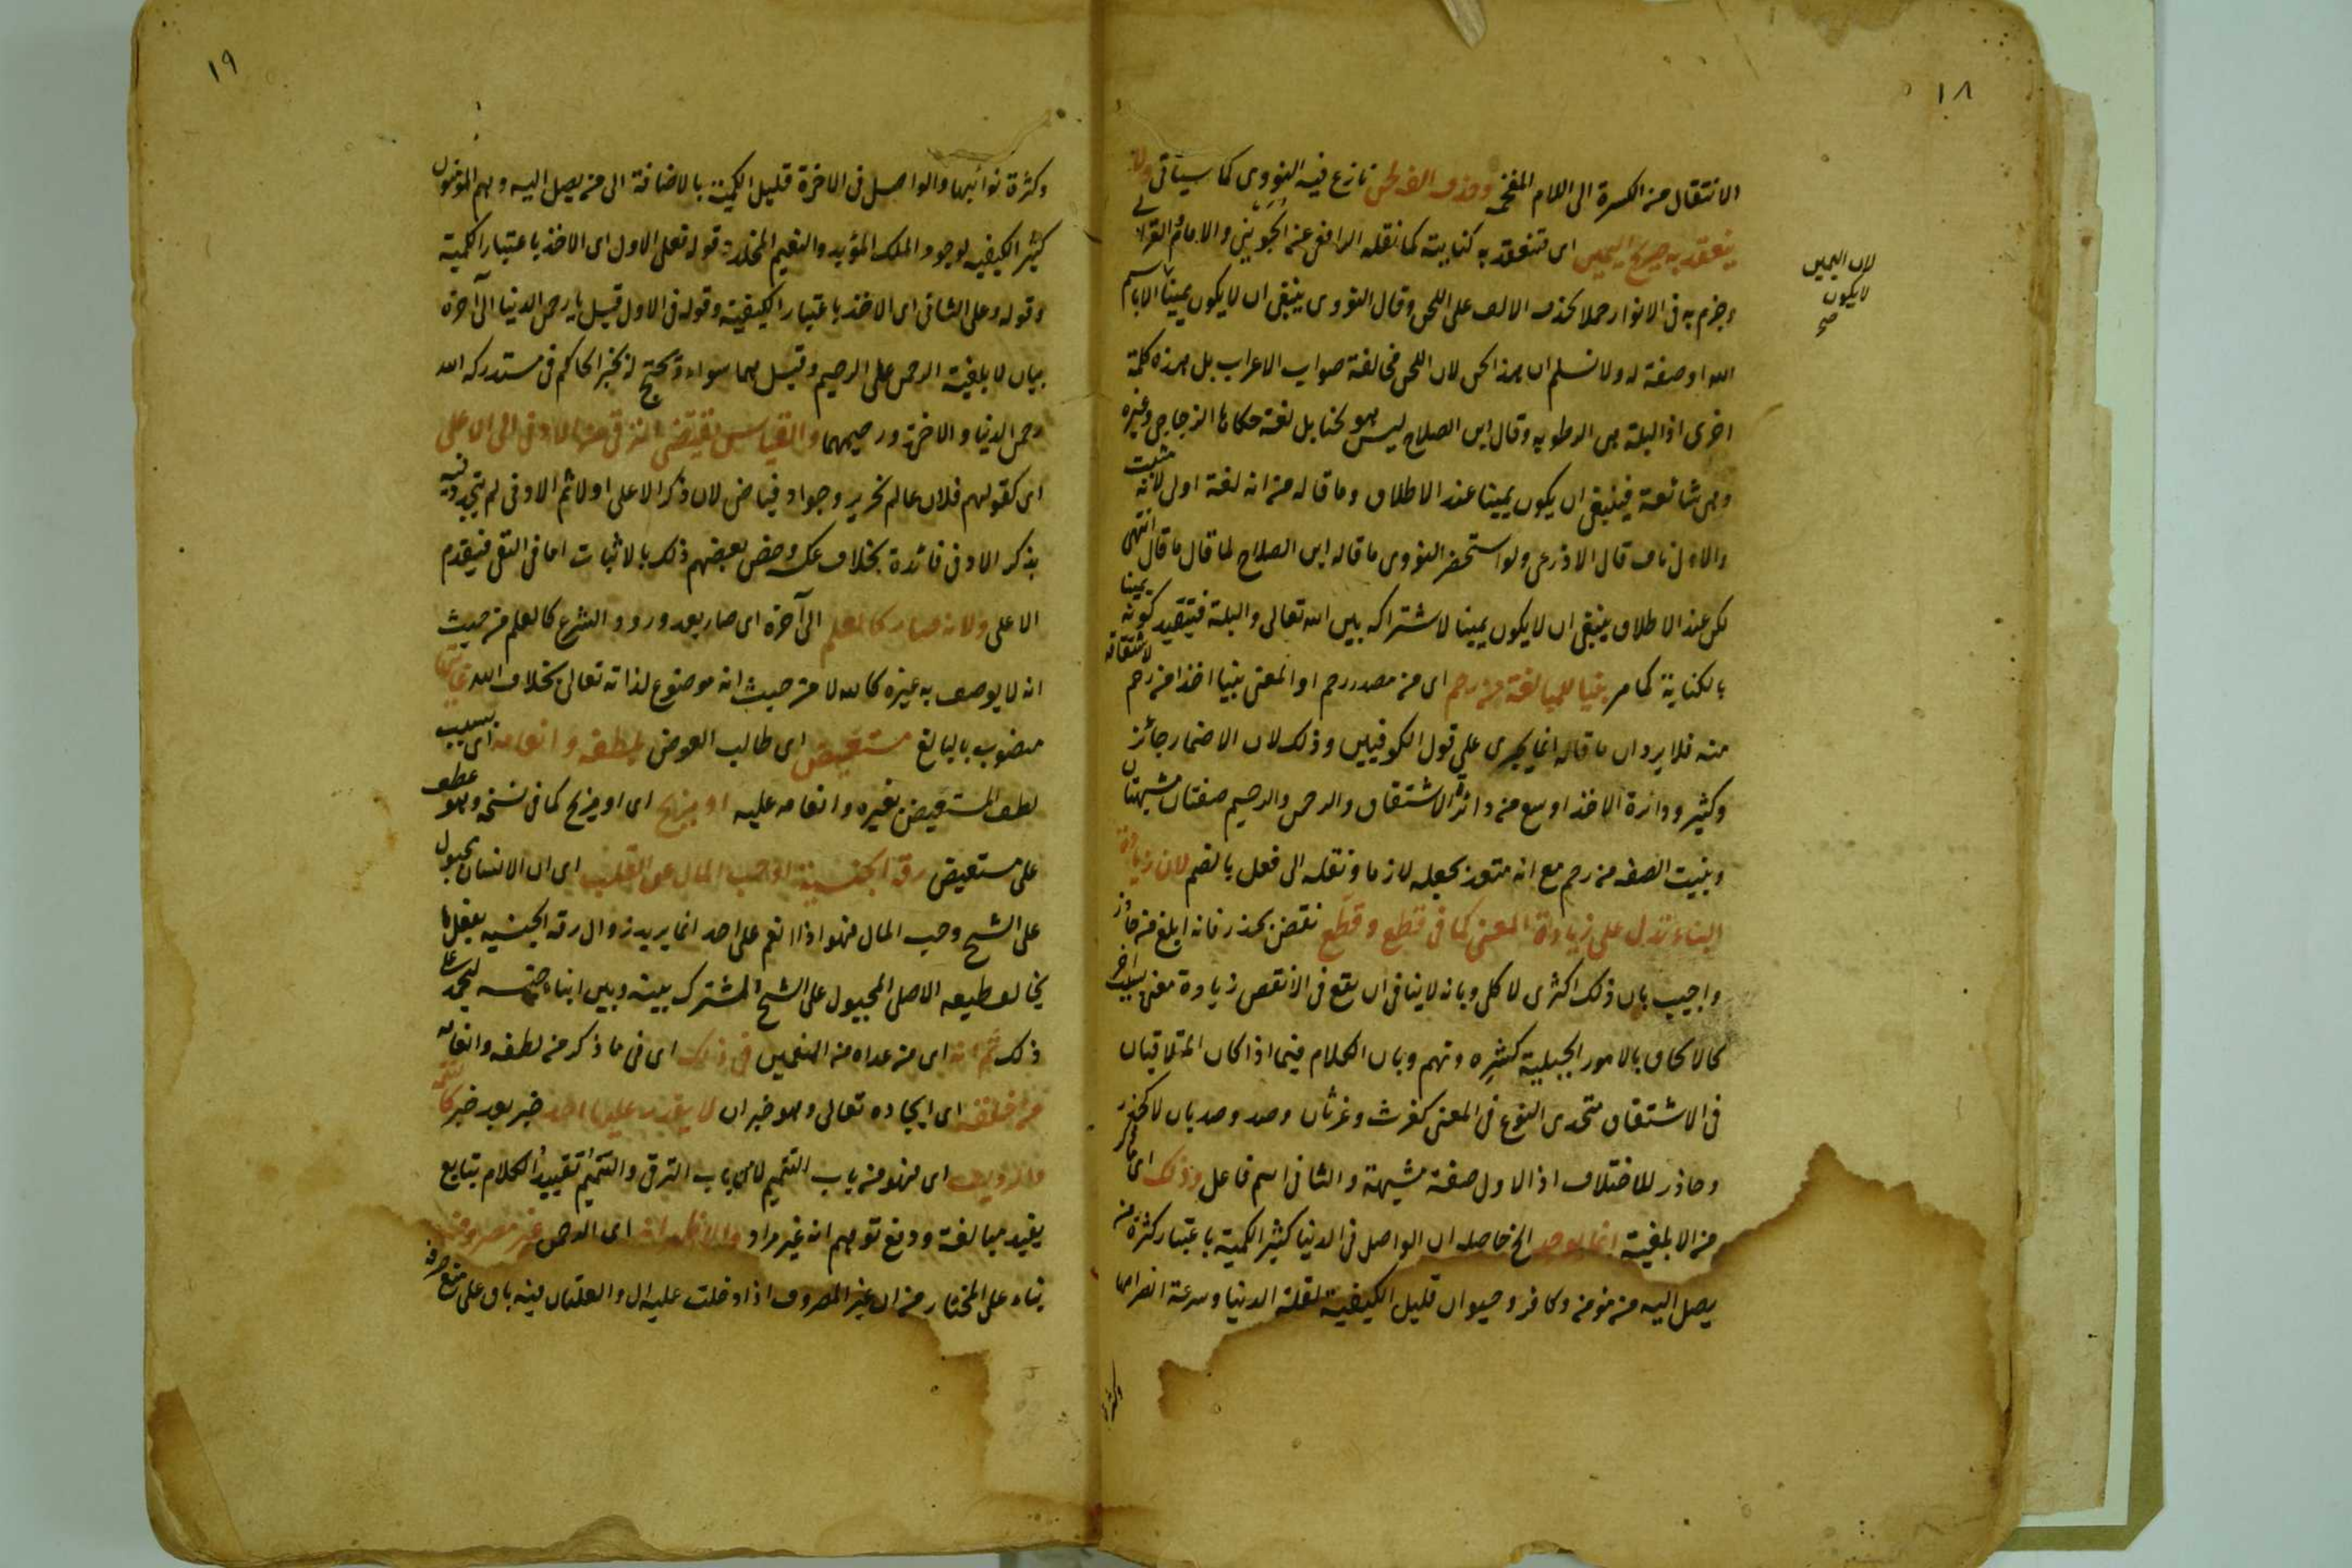 ١٨
الانتقال من الكسرة الى اللام المفخمه وحذف الفه لحن نازع فيه النووى كما سياتى ولا
ينعقد به صريح اليمين اى تنعقد به كنايته كما نقله الرافعى عن الجوينى والامام الغزالى
وجزم به فى الانوار حملا لحذف الالف على اللحن وقال النووى ينبغى ان لا يكون يمينا الا باسم
الله او صفة له ولا نسلم ان هذا لحن لان اللحن مخالفة صواب الاعراب بل هذه كلمة
اخرى اذ البلة هى الرطوبه وقال ابن الصلاح ليس هو لحنا بل لغة حكاها الزجاجى وغيره
وهى شائعة فينبغى ان يكون يمينا عند الاطلاق وما قاله من انه لغة اولى لانه مثبت
والاول ناف قال الاذرعى ولو استحضر النووى ما قاله ابن الصلاح لما قال ما قال انتهى
لكن عند الاطلاق ينبغى ان لا يكون يمينا لاشتراكه بين الله تعالى والبلة فيتقيد كونه يمينا
بالكناية كما مر بنيا للمبالغة من رحم اى من مصدر رحم او المعنى بنيا اخذا من رحم لاشتقاقه
منه فلا يرد ان ما قاله انما يجرى على قول الكوفيين وذلك لان الاضمار جائز
وكثير ودائرة الاخذ اوسع من دائرة الاشتقاق والرحمن والرحيم صفتان مشبهتان
وبنيت الصفه من رحم مع انه متعد بجعله لازما ونقله الى فعل بالضم لان زيادة
البناء تدل على زيادة المعنى كما فى قطع وقطّع نقض بحذر فانه ابلغ من حاذر
واجيب بان ذلك اكثرى لا كلى وبانه لا ينافى ان يقع فى الانقص زيادة معنى بسبب اخر
كالالحاق بالامور الجبلية كشره ونهم وبان الكلام فيما اذا كان المتلاقيان
فى الاشتقاق متحدى النوع فى المعنى كغرث وغرثان وصد وصديان لا كحذر
وحاذر للاختلاف اذ الاول صفة مشبهة والثانى اسم فاعل وذلك اى ما ذكر
من الابلغية انما يوجد الخ حاصله ان الواصل فى الدنيا كثير الكمية باعتبار كثرة من
يصل اليه من مومن وكافر وحيوان قليل الكيفية لقلة الدنيا وسرعة انصرامها
لان اليمين
لا يكون
صح
١٩
وكثرة نوائبها والواصل فى الاخرة قليل الكمية بالاضافة الى من يصل اليه وهم المؤمنون
كثير الكيفيه لوجود الملك المؤبد والنعيم المخلد قوله فعلى الاول اى الاخذ باعتبار الكمية
وقوله وعلى الثانى اى الاخذ باعتبار الكيفية وقوله فى الاول قيل يا رحمن الدنيا الى آخره
بيان لابلغية الرحمن على الرحيم وقيل هما سواء ويحتج له بخبر الحاكم فى مستدركه الله
رحمن الدنيا والاخرة ورحيمهما والقياس يقتضى الترقى من الادنى الى الاعلى
اى كقولهم فلان عالم نحرير وجواد فياض لان ذكر الاعلى اولا ثم الادنى لم يتجدد فيه
بذكر الادنى فائدة بخلاف عكسه وخص بعضهم ذلك بالاثبات اما فى النفى فيقدم
الاعلى ولانه صار كالعلم الى آخره اى صار بعد ورود الشرع كالعلم من حيث
انه لا يوصف به غيره كالله لا من حيث انه موضوع لذاته تعالى بخلاف الله
منصوب بالبالغ مستعيض اى طالب العوض بلطفه وانعامه اى بسبب
لطف المستعيض بغيره وانعامه عليه او يزيح اى او مزيح كما فى نسخه وهو عطف
على مستعيض رقة الجنسية او حب المال عن القلب اى ان الانسان مجبول
على الشح وحب المال فهو اذا انعم على احد انما يريد زوال رقه الجنسيه بفعل ما
يخالف طبعه الاصلى المجبول على الشح المشترك بينه وبين ابناء جنسه ليحمد على
ذلك ثم انه اى من عداه من المنعمين فى ذلك اى فى ما ذكر من لطفه وانعامه
من خلقه اى ايجاده تعالى وهو خبر ان لا يقدر عليها احد خبر بعد خبر كالتتمة
والرديف اى فهو من باب التتميم لا من باب الترقى والتتميم تقييد الكلام بتابع
يفيد مبالغة ودفع توهم انه غير مراد والاظهر انه اى الرحمن غير مصروف
بناء على المختار من ان غير المصروف اذا دخلت عليه ال والعلتان فيه باق على منع صرفه